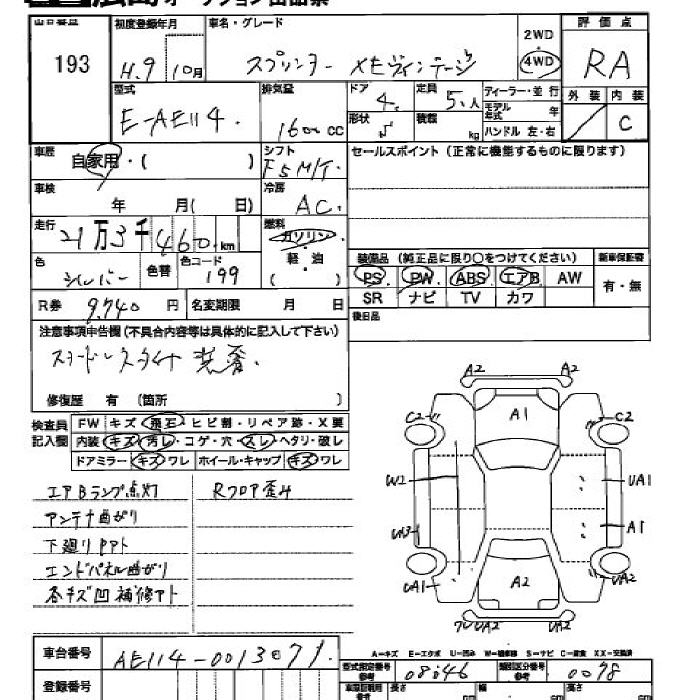 出品番号 初度登録年月 車名・グレード 評価点
193 H.9 10月 スプリンター XEヴィンテージ 2WD 4WD RA
型式 排気量 ドア 定員 ディーラー・並行 外装 内装
E-AE114. 1600 CC 4. 5.人 モデル年式 年
形状 積載 kg ハンドル 左・右 C
車歴 シフト セールスポイント (正常に機能するものに限ります)
自家用・( ) F5 M/T.
車検 冷房
年 月( 日) AC.
走行 燃料
21万3千460.km ガソリン.
色 色替 色コード 軽・油 装備品 (純正品に限り○をつけてください) 新車保証書
シルバー 199 ( ) PS PW ABS エアB AW 有・無
R券 9.740 円 名変期限 月 日 SR ナビ TV カワ
注意事項申告欄(不具合内容等は具体的に記入して下さい) 後日品
スタッドレスタイヤ 装着.
修復歴 有 (箇所 )
検査員 FW キズ・飛石・ヒビ割・リペア跡・X要
記入欄 内装 キズ・汚レ・コゲ・穴・スレ・ヘタリ・破レ
ドアミラー キズ・ワレ ホイール・キャップ キズ・ワレ
エアBランプ点灯 Rフロア歪み
アンテナ曲がり
下廻りPアト
エンドパネル曲がり
各キズ凹補修アト
A2 A2
A1
C2 C2
W2 UA1
A1
UA1 A2 UA2
UA2 UA2
A…キズ E…エクボ U…凹み W…補修跡 S…サビ C…腐食 XX…交換済
車台番号 AE114-0013071. 型式指定番号 参考 08646 類別区分番号 参考 0098
登録番号 長さ 幅 高さ